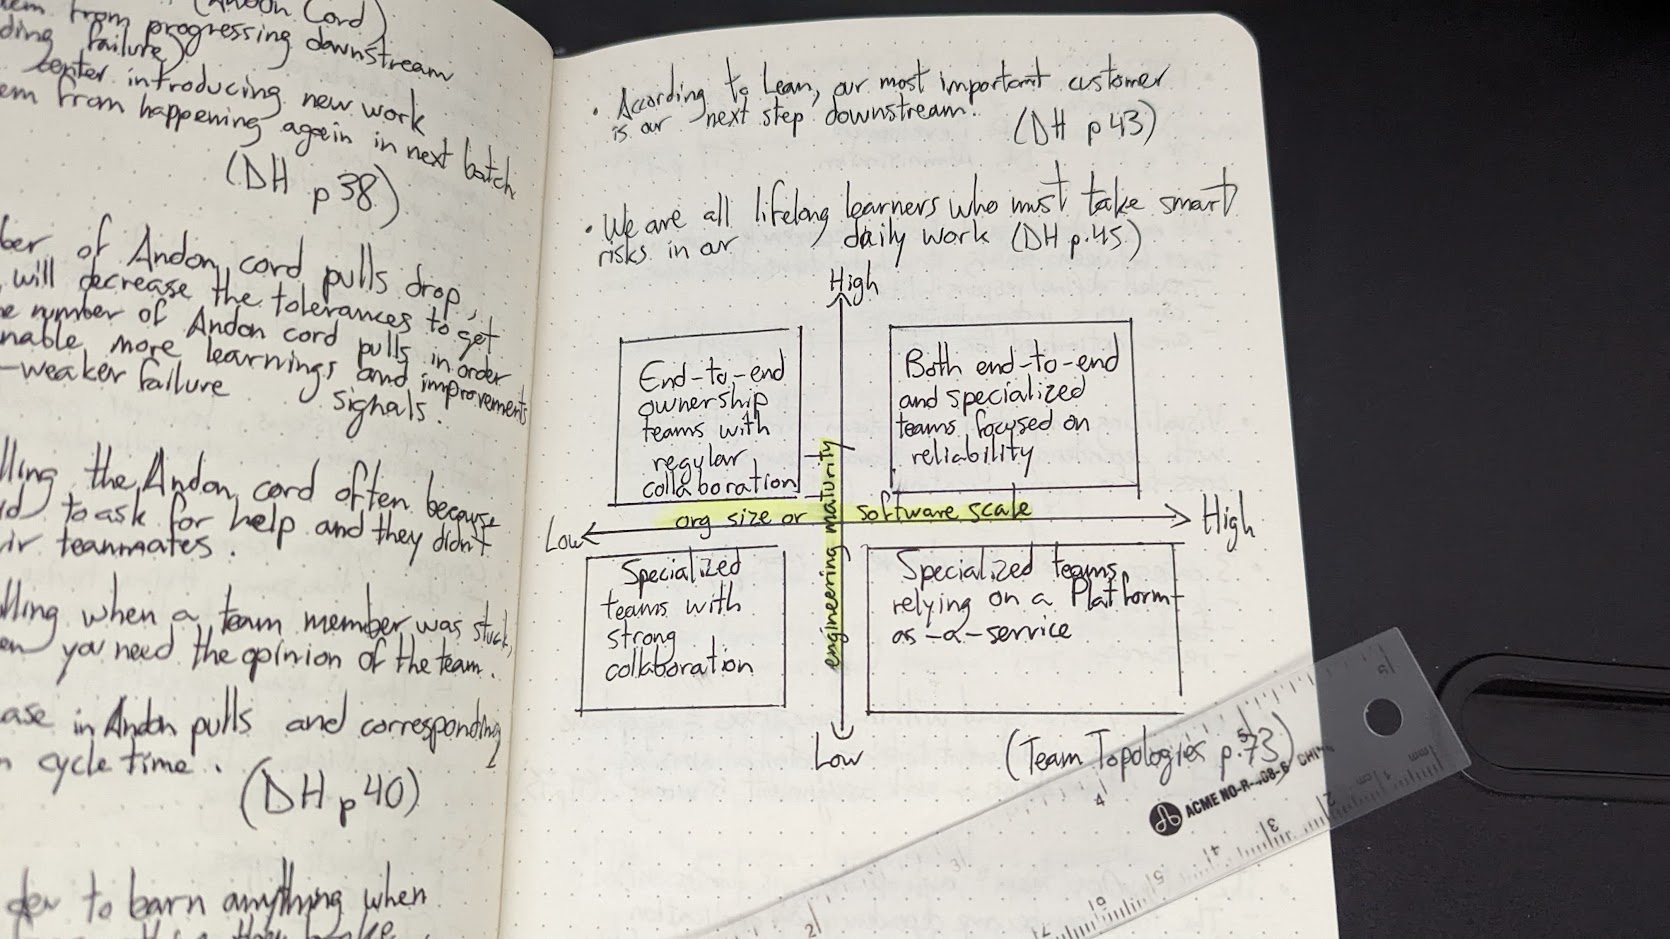 (Andon Cord)
from progressing downstream
failure
center introducing new work
from happening again in next batch
(DH p 38)
of Andon cord pulls drop,
will decrease the tolerances to get
number of Andon cord pulls in order
more learnings and improvements
weaker failure signals.
the Andon cord often because
to ask for help and they didn't
teammates.
when a team member was stuck,
you need the opinion of the team.
in Andon pulls and corresponding
cycle time.
(DH p 40)
dev to barn anything when
• According to Lean, our most important customer
is our next step downstream.
(DH p 43)
• We are all lifelong learners who must take smart
risks in our daily work (DH p.45)
High
End-to-end
ownership
teams with
regular
collaboration
Both end-to-end
and specialized
teams focused on
reliability
Low
org size or software scale
High
engineering maturity
Specialized
teams with
strong
collaboration
Specialized teams
relying on a Platform-
as-a-service
Low
(Team Topologies p.73)
ACME